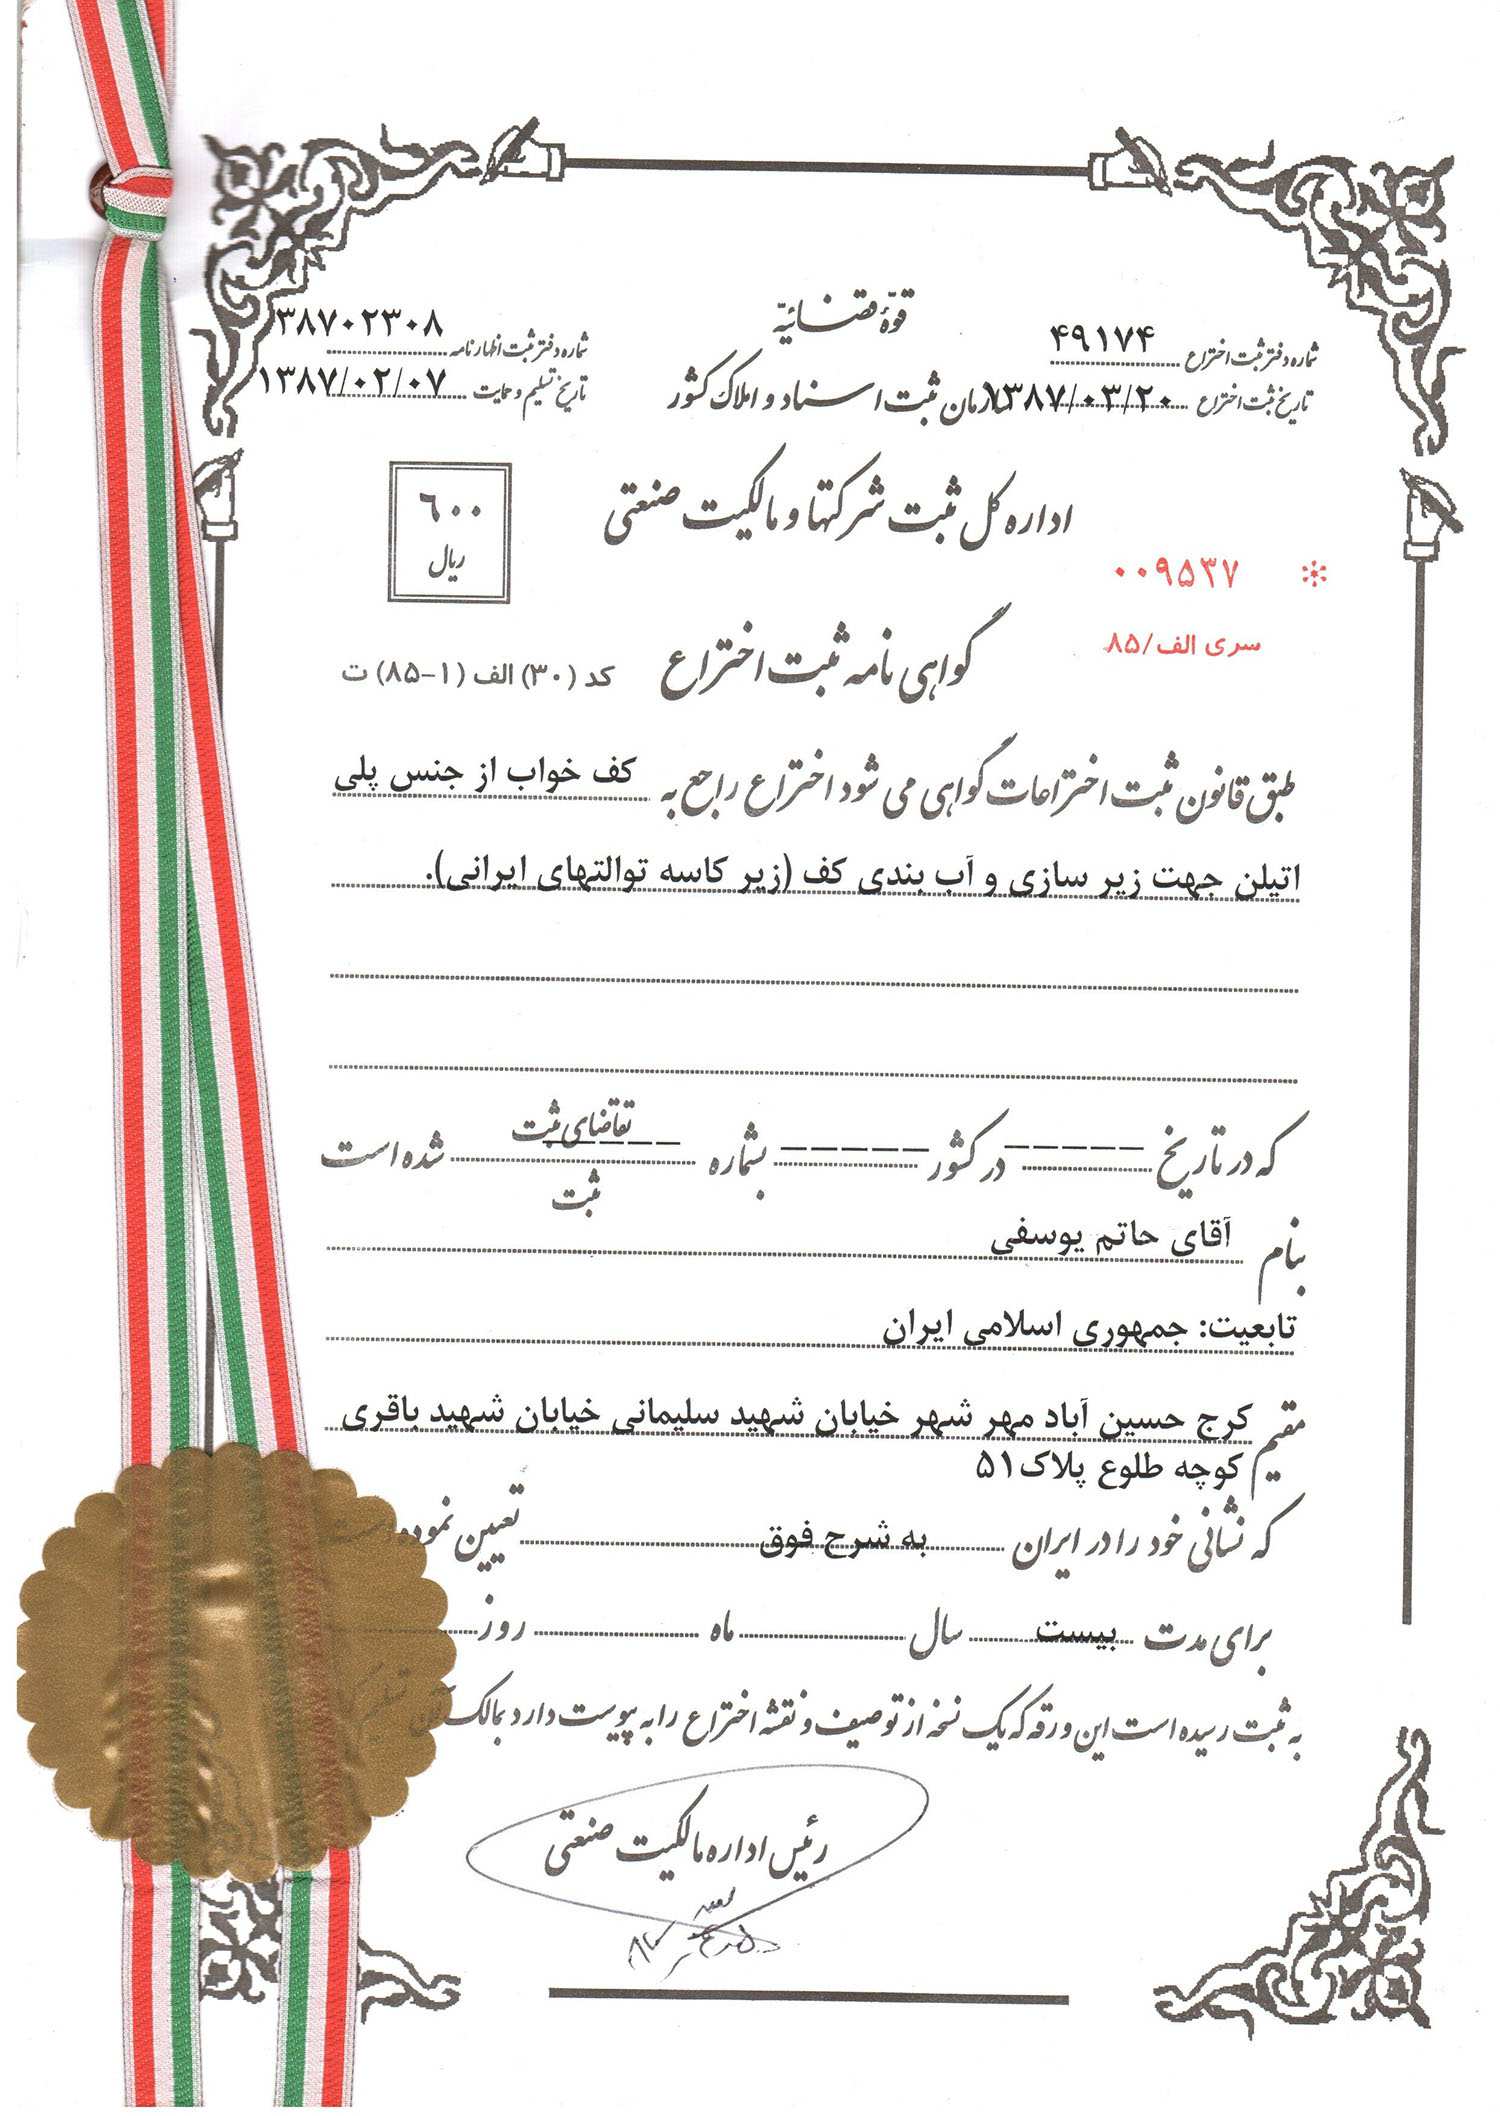 قوّهٔ قضائیّه
شماره دفتر ثبت اختراع ۴۹۱۷۴
شماره دفتر ثبت اظهارنامه ۳۸۷۰۲۳۰۸
سازمان ثبت اسناد و املاک کشور
تاریخ ثبت اختراع ۱۳۸۷/۰۳/۲۰
تاریخ تسلیم و حمایت ۱۳۸۷/۰۲/۰۷
اداره کل ثبت شرکتها و مالکیت صنعتی
۶۰۰
ریال
۰۰۹۵۳۷
سری الف/۸۵
گواهی نامه ثبت اختراع
کد (۳۰) الف (۱-۸۵) ت
طبق قانون ثبت اختراعات گواهی می شود اختراع راجع به کف خواب از جنس پلی
اتیلن جهت زیر سازی و آب بندی کف (زیر کاسه توالتهای ایرانی).
که در تاریخ ------ در کشور ------ بشماره ------ تقاضای ثبت شده است
ثبت
بنام آقای حاتم یوسفی
تابعیت: جمهوری اسلامی ایران
مقیم کرج حسین آباد مهر شهر خیابان شهید سلیمانی خیابان شهید باقری
کوچه طلوع پلاک ۵۱
که نشانی خود را در ایران به شرح فوق تعیین نموده است
برای مدت بیست سال ماه روز
به ثبت رسیده است این ورقه که یک نسخه از توصیف و نقشه اختراع را به پیوست دارد بمالک آن
رئیس اداره مالکیت صنعتی